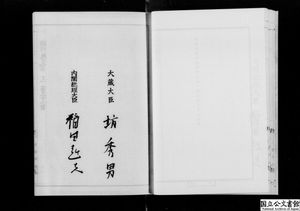 大蔵大臣 坊秀男
内閣総理大臣 福田赳夫
国立公文書館
National Archives of Japan